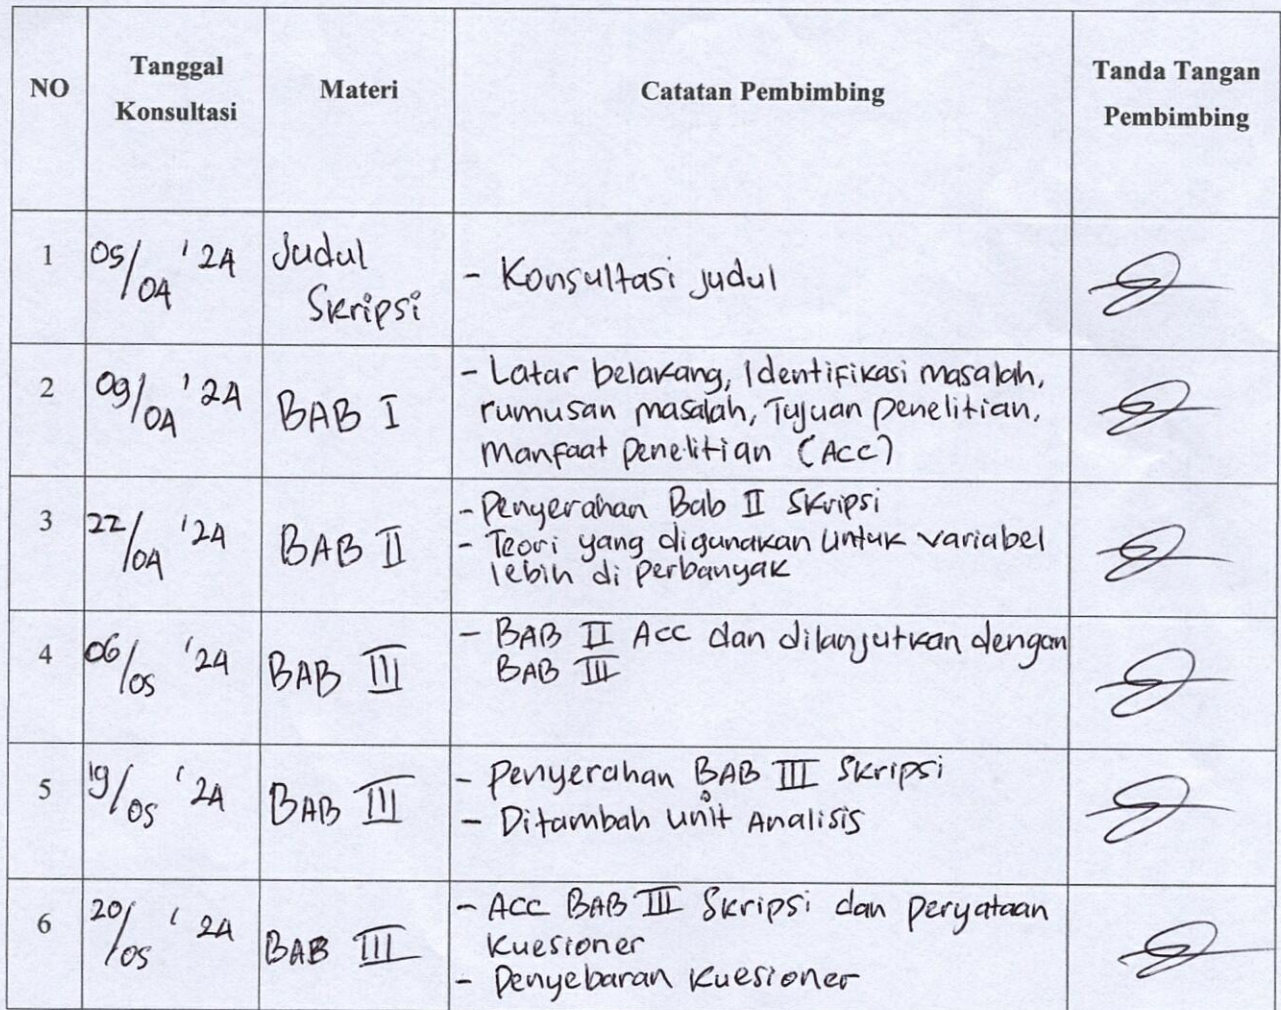 NO
Tanggal Konsultasi
Materi
Catatan Pembimbing
Tanda Tangan Pembimbing
1
05/04 '24
Judul
Skripsi
- Konsultasi judul
2
09/04 '24
BAB I
- Latar belakang, Identifikasi masalah,
rumusan masalah, Tujuan penelitian,
manfaat penelitian (Acc)
3
22/04 '24
BAB II
- Penyerahan Bab II Skripsi
- Teori yang digunakan untuk variabel
lebih di perbanyak
4
06/05 '24
BAB III
- BAB II Acc dan dilanjutkan dengan
BAB III
5
19/05 '24
BAB III
- Penyerahan BAB III Skripsi
- Ditambah unit Analisis
6
20/05 '24
BAB III
- Acc BAB III Skripsi dan peryataan
Kuesioner
- Penyebaran Kuesioner